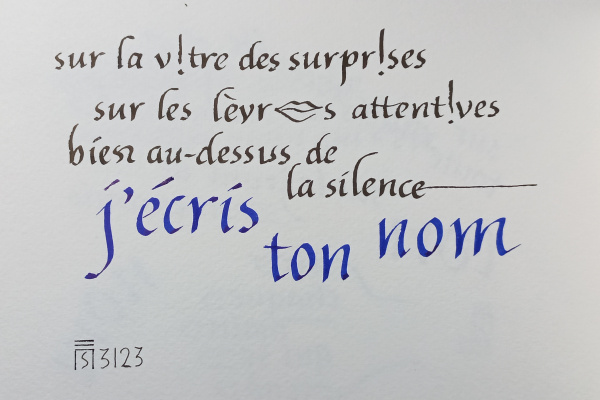 sur la v!tre des surpr!ses
sur les lèvr👄s attent!ves
bien au-dessus de
la silence
j'écris
ton nom
3123